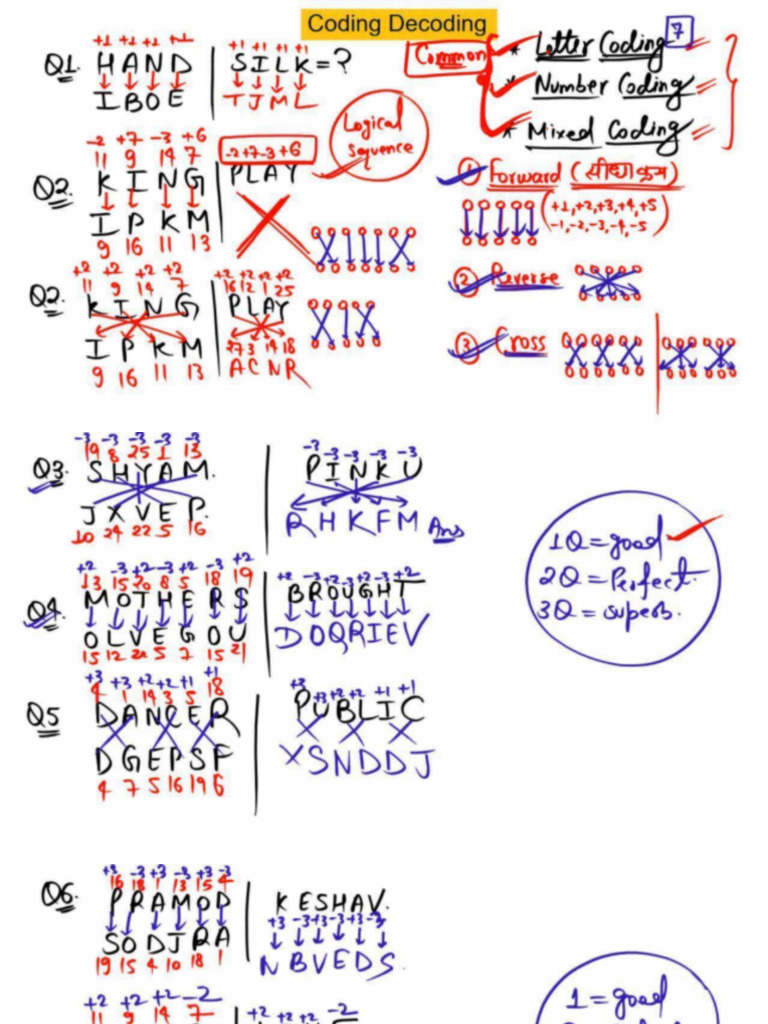 Coding Decoding
7
Common
* Letter Coding
* Number Coding
* Mixed Coding
+1 +1 +1 +1
Q1. HAND
IBOE
+1 +1 +1 +1
SILK = ?
TJML
Logical
sequence
-2 +7 -3 +6
11 9 14 7
Q2. KING
IPKM
9 16 11 13
-2+7-3+6
PLAY
① Forward (सीधा क्रम)
+1,+2,+3,+4,+5
-1,-2,-3,-4,-5
② Reverse
③ Cross
+2 +2 +2 +2
11 9 14 7
Q2. KING
IPKM
9 16 11 13
+2 +2 +2 +2
16 12 1 25
PLAY
27 3 14 18
ACNR
-3 -3 -3 -3 -3
19 8 25 1 13
Q3. SHYAM.
JXVEP.
10 24 22 5 16
-3 -3 -3 -3 -3
PINKU
RHKFM Ans
1Q = good
2Q = Perfect.
3Q = superb.
+2 -3 +2 -3 +2 -3 +2
13 15 20 8 5 18 19
Q4. MOTHERS
OLVEGOU
15 12 22 5 7 15 21
+2 -3 +2 -3 +2 -3 +2
BROUGHT
DOQRIEV
+3 +3 +2 +2 +1 +1
4 1 14 3 5 18
Q5 DANCER
DGEPSF
4 7 5 16 19 6
+3 +3 +2 +2 +1 +1
PUBLIC
XSNDDJ
+3 -3 +3 -3 +3 -3
16 18 1 13 15 4
Q6. PRAMOD
SODJRA
19 15 4 10 18 1
KESHAV.
+3 -3 +3 -3 +3 -3
NBVEDS.
1 = good
+2 +2 +2 -2
11 9 14 7
+2 +2 +2 -2